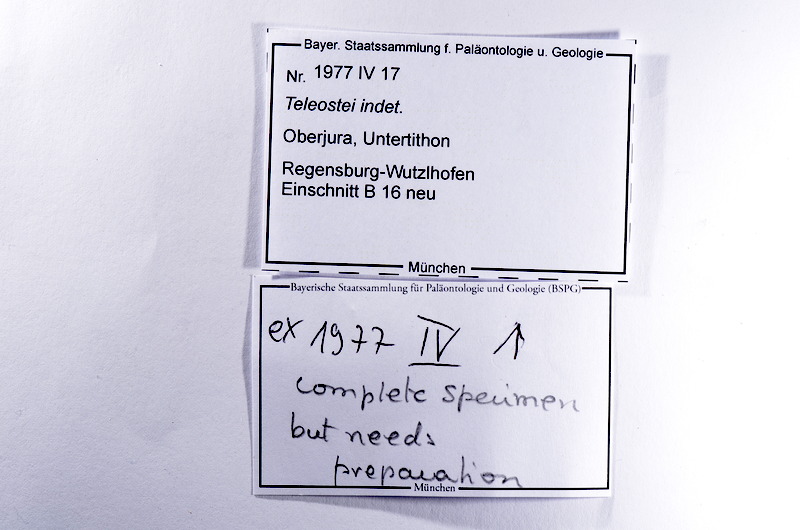 Bayer. Staatssammlung f. Paläontologie u. Geologie
Nr. 1977 IV 17
Teleostei indet.
Oberjura, Untertithon
Regensburg-Wutzlhofen
Einschnitt B 16 neu
München
Bayerische Staatssammlung für Paläontologie und Geologie (BSPG)
ex 1977 IV ↑
complete specimen
but needs
preparation
München